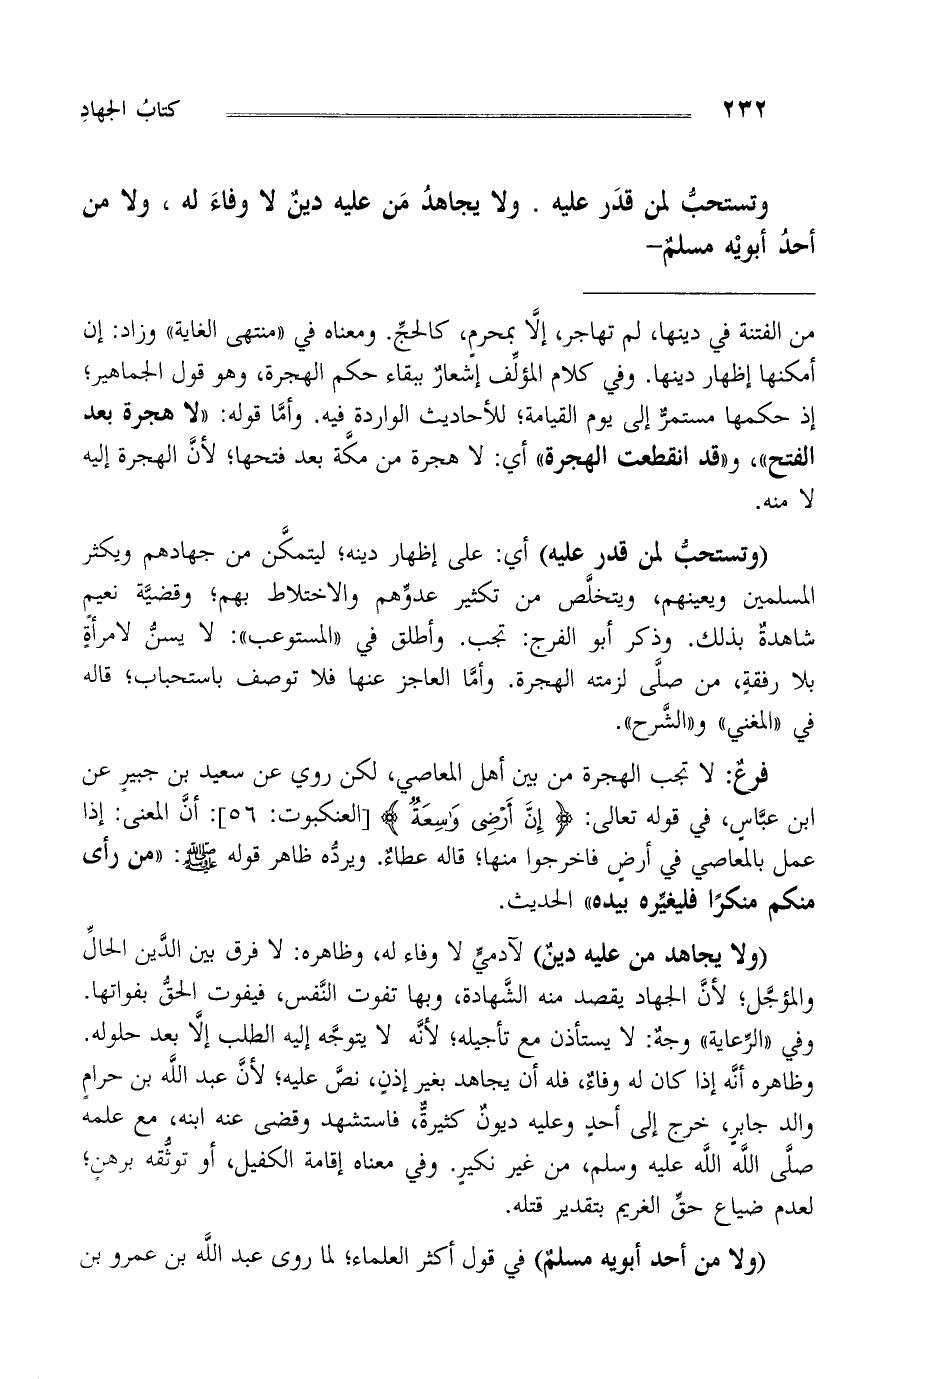 ٢٣٢ كتابُ الجهادِ
وتستحبُّ لمن قدَر عليه . ولا يجاهدُ مَن عليه دينٌ لا وفاءَ له ، ولا من
أحدُ أبويْه مسلمٌ–
من الفتنة في دينها، لم تهاجر، إلَّا بمحرمٍ، كالحجِّ. ومعناه في «منتهى الغاية» وزاد: إن
أمكنها إظهار دينها. وفي كلام المؤلِّف إشعارٌ ببقاء حكم الهجرة، وهو قول الجماهير؛
إذ حكمها مستمرٌّ إلى يوم القيامة؛ للأحاديث الواردة فيه. وأمَّا قوله: «لا هجرة بعد
الفتح»، و«قد انقطعت الهجرة» أي: لا هجرة من مكَّة بعد فتحها؛ لأنَّ الهجرة إليه
لا منه.
(وتستحبُّ لمن قدر عليه) أي: على إظهار دينه؛ ليتمكَّن من جهادهم ويكثر
المسلمين ويعينهم، ويتخلَّص من تكثير عدوِّهم والاختلاط بهم؛ وقضيَّة نعيمٍ
شاهدةٌ بذلك. وذكر أبو الفرج: تجب. وأطلق في «المستوعب»: لا يسنُّ لامرأةٍ
بلا رفقةٍ، من صلَّى لزمته الهجرة. وأمَّا العاجز عنها فلا توصف باستحباب؛ قاله
في «المغني» و«الشَّرح».
فرعٌ: لا تجب الهجرة من بين أهل المعاصي، لكن روي عن سعيد بن جبيرٍ عن
ابن عبَّاسٍ، في قوله تعالى: ﴿ إِنَّ أَرْضِى وَٰسِعَةٌ ﴾ [العنكبوت: ٥٦]: أنَّ المعنى: إذا
عمل بالمعاصي في أرضٍ فاخرجوا منها؛ قاله عطاءٌ. ويردُّه ظاهر قوله ﷺ: «من رأى
منكم منكرًا فليغيِّره بيده» الحديث.
(ولا يجاهد من عليه دينٌ) لآدميٍّ لا وفاء له، وظاهره: لا فرق بين الدَّين الحالِّ
والمؤجَّل؛ لأنَّ الجهاد يقصد منه الشَّهادة، وبها تفوت النَّفس، فيفوت الحقُّ بفواتها.
وفي «الرِّعاية» وجهٌ: لا يستأذن مع تأجيله؛ لأنَّه لا يتوجَّه إليه الطلب إلَّا بعد حلوله.
وظاهره أنَّه إذا كان له وفاءٌ، فله أن يجاهد بغير إذنٍ، نصَّ عليه؛ لأنَّ عبد اللَّه بن حرامٍ
والد جابرٍ، خرج إلى أحدٍ وعليه ديونٌ كثيرةٌ، فاستشهد وقضى عنه ابنه، مع علمه
صلَّى اللَّه اللَّه عليه وسلم، من غير نكيرٍ. وفي معناه إقامة الكفيل، أو توثُّقه برهنٍ؛
لعدم ضياع حقِّ الغريم بتقدير قتله.
(ولا من أحد أبويه مسلمٌ) في قول أكثر العلماء؛ لما روى عبد اللَّه بن عمرو بن